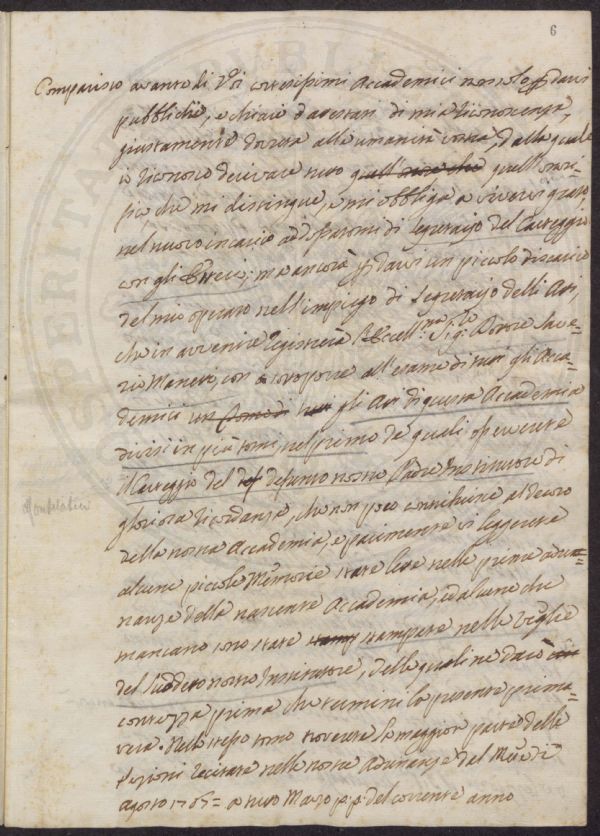 6
Comparisco avanti di Voi cortesissimi Accademici non solo p darvi
pubbliche, e chiare d'attestati di mia riconoscenza,
giustamente dovuta alla umanità vostra, dalla quale
io riconosco derivare tutto quell'onore che quell'onori-
fico, che mi distingue, e mi obbliga a vivervi grato
nel nuovo incarico addossatomi di Segretario del Carteggio
con gli Esteri; ma ancora p darvi un piccolo discarico
del mio operato nell'impiego di Segretario delli Atti,
che in avvenire registrerà l'Eccell.mo Sig.re Dottore Save-
rio Manetti, con sottoporre all'esame di tutti gli Acca-
demici gli Atti di questa Accademia
divisi in più tomi, nel primo de quali si perverrete
il Carteggio del defunto nostro Padre Institutore di
Montelatici
gloriosa ricordanza, che non poco contribuire al decoro
della nostra Accademia, e parimente vi leggerete
alcune piccole Memorie state lette nelle prime adu-
nanze della nascente Accademia, ed alcune che
mancano sono state stampate nelle Veglie
del suddetto nostro Institutore, delle quali ne darò
contezza prima che termini la presente prima-
vera. Nello stesso tomo troverete la maggior parte delle
Lezioni recitate nelle nostre Adunanze del Mese di
agosto 1765 = a tutto Marzo p.p. del corrente anno